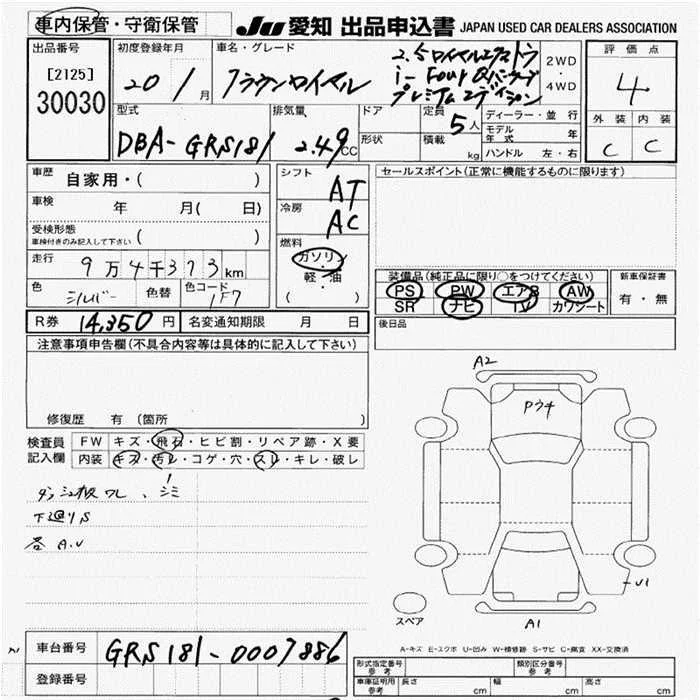 車内保管・守衛保管
JU 愛知 出品申込書 JAPAN USED CAR DEALERS ASSOCIATION
出品番号
[2125]
30030
初度登録年月
20 / 1 月
車名・グレード
クラウンロイヤル
2.5ロイヤルエクストラ
i-Four Qパッケージ
プレミアムエディション
2WD
・
4WD
評価点
4
外装 内装
C C
型式
DBA-GRS181
排気量
2.49 CC
ドア
形状
定員
5人
積載
kg
ディーラー・並行
モデル年式 年
ハンドル 左・右
車歴
自家用・( )
車検
年 月( 日)
受検形態
車検付きのみ記入して下さい ( )
走行
9万4千373km
色
シルバー
色替
色コード
1F7
シフト
AT
冷房
AC
燃料
ガソリン
軽・油
( )
セールスポイント(正常に機能するものに限ります)
装備品(純正品に限り○をつけてください)
PS PW エアB AW
SR ナビ TV カワシート
新車保証書
有・無
後日品
R券 14,350 円
名変通知期限 月 日
注意事項申告欄(不具合内容等は具体的に記入して下さい)
修復歴 有 (箇所 )
検査員
記入欄
FW キズ・飛石・ヒビ割・リペア跡・X要
内装 キズ・汚レ・コゲ・穴・スレ・キレ・破レ
ダッシュ板ワレ、シミ
下廻りS
各A.U
A2
Pウチ
U1
A1
スペア
A-キズ E-エクボ U-凹み W-補修跡 S-サビ C-腐食 XX-交換済
車台番号
GRS181-0007886
登録番号
形式指定番号
参考
類別区分番号
参考
車庫証明用
参考
長さ cm 幅 cm 高さ cm